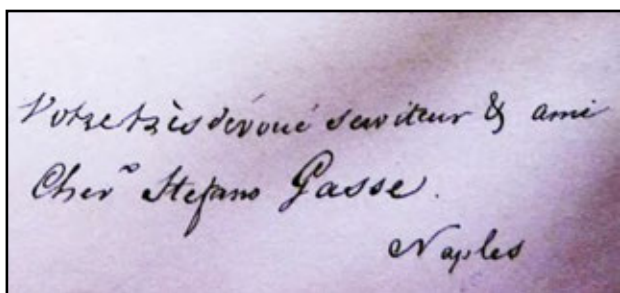 Votre très dévoué serviteur & ami
Cher° Stefano Gasse.
Naples